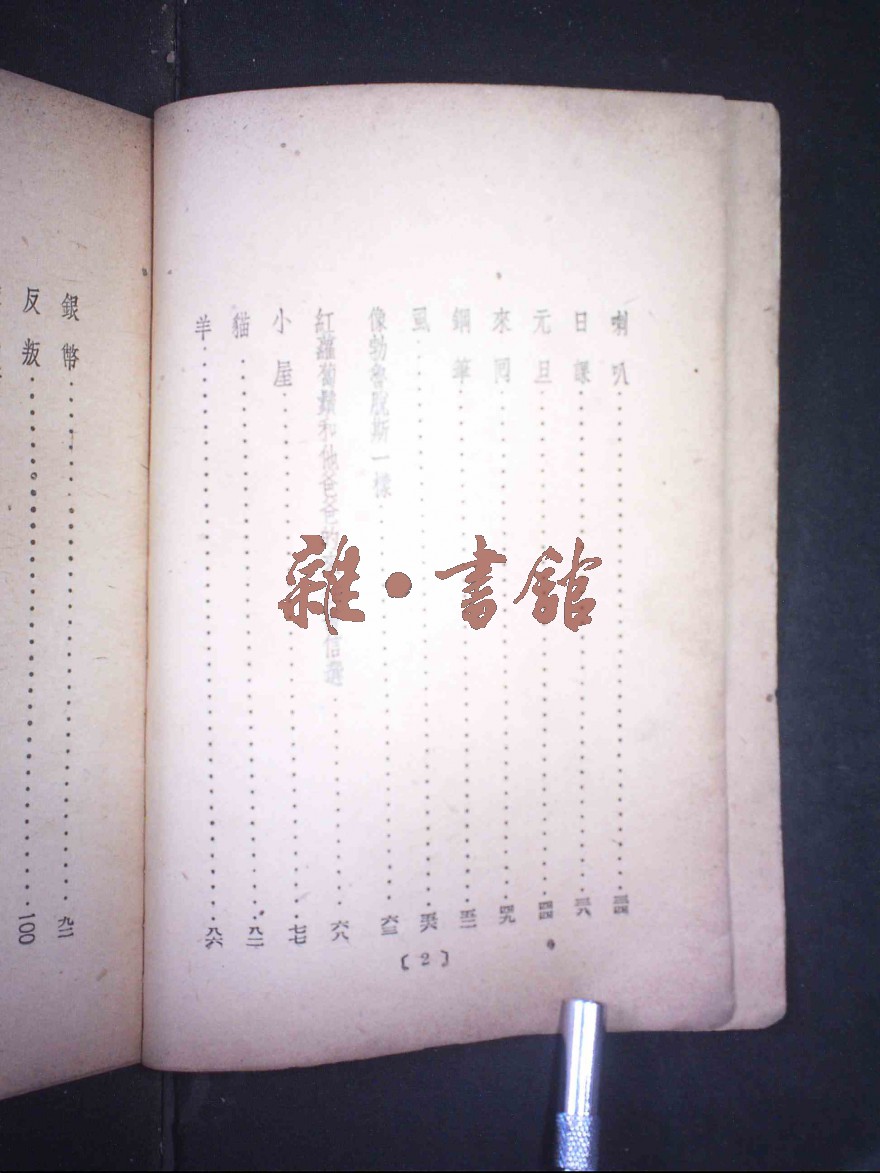 喇叭……三四
日課……三八
元旦……四四
來回……四九
鋼筆……五二
虱……五六
像勃魯脫斯一樣……六三
紅蘿蔔鬚和他爸爸的 信選……六八
小屋……七七
貓……八二
羊……八六
〔2〕
銀幣……九二
反叛……100
雜·書館